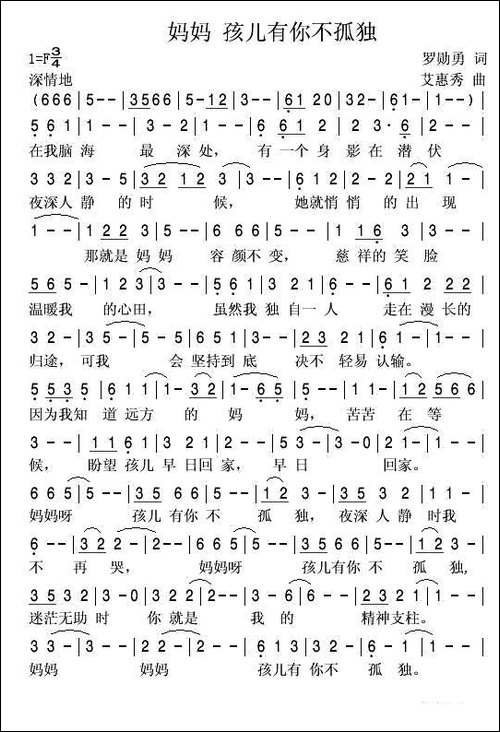 妈妈 孩儿有你不孤独
1=F3/4 罗勋勇 词
深情地 艾惠秀 曲
(666|5--|3566|5--|5-12|3--|61 20|32-|61-|1--)|
561|1--|3-2|1-2|661 2|2-3|23·6|2--|
在我脑 海 最 深 处, 有 一个 身 影 在 潜 伏
332|3-5|32 12 3|3--|612|2-2|2-1|1--|
夜深人 静 的 时 候, 她就悄 悄 的 出 现
1--|1223|5-5|665|5--|1116|3-3|
那就是 妈 妈 容 颜不 变, 慈 祥的 笑 脸
565|123|3--|556|1-2|2--|61 22 2|
温暖我 的心田, 虽然我 独 自一 人 走在 漫 长的
232|1--|35 6 5|3--|23 21|612|2--|
归途, 可我 会 坚持到 底 决不 轻易 认输。
5535|611|1-2|2-3|1-65|5--|1--|12566|
因为我知 道 远方 的 妈 妈, 苦苦 在 等
3--|1161|322|2--|53 3-0|21-|1--|
候, 盼望 孩儿 早 日回 家, 早 日 回家。
665|5--|35 66 5|5-3|12 3|35 3 2|1--|
妈妈呀 孩儿 有你 不 孤 独, 夜深 人 静 时我
6--|322-|2--|665|5--|35 665|5-3|123|
不 再 哭, 妈妈呀 孩儿有你 不 孤 独,
3532|3-0|332|3-5|2-2|2--|321 2|1--|
迷茫无助 时 你 就是 我 的 精神支柱。
33-|3--|22-|2--|61 332|2-3|2-1|1--|
妈妈 妈妈 孩儿有 你不 孤 独。